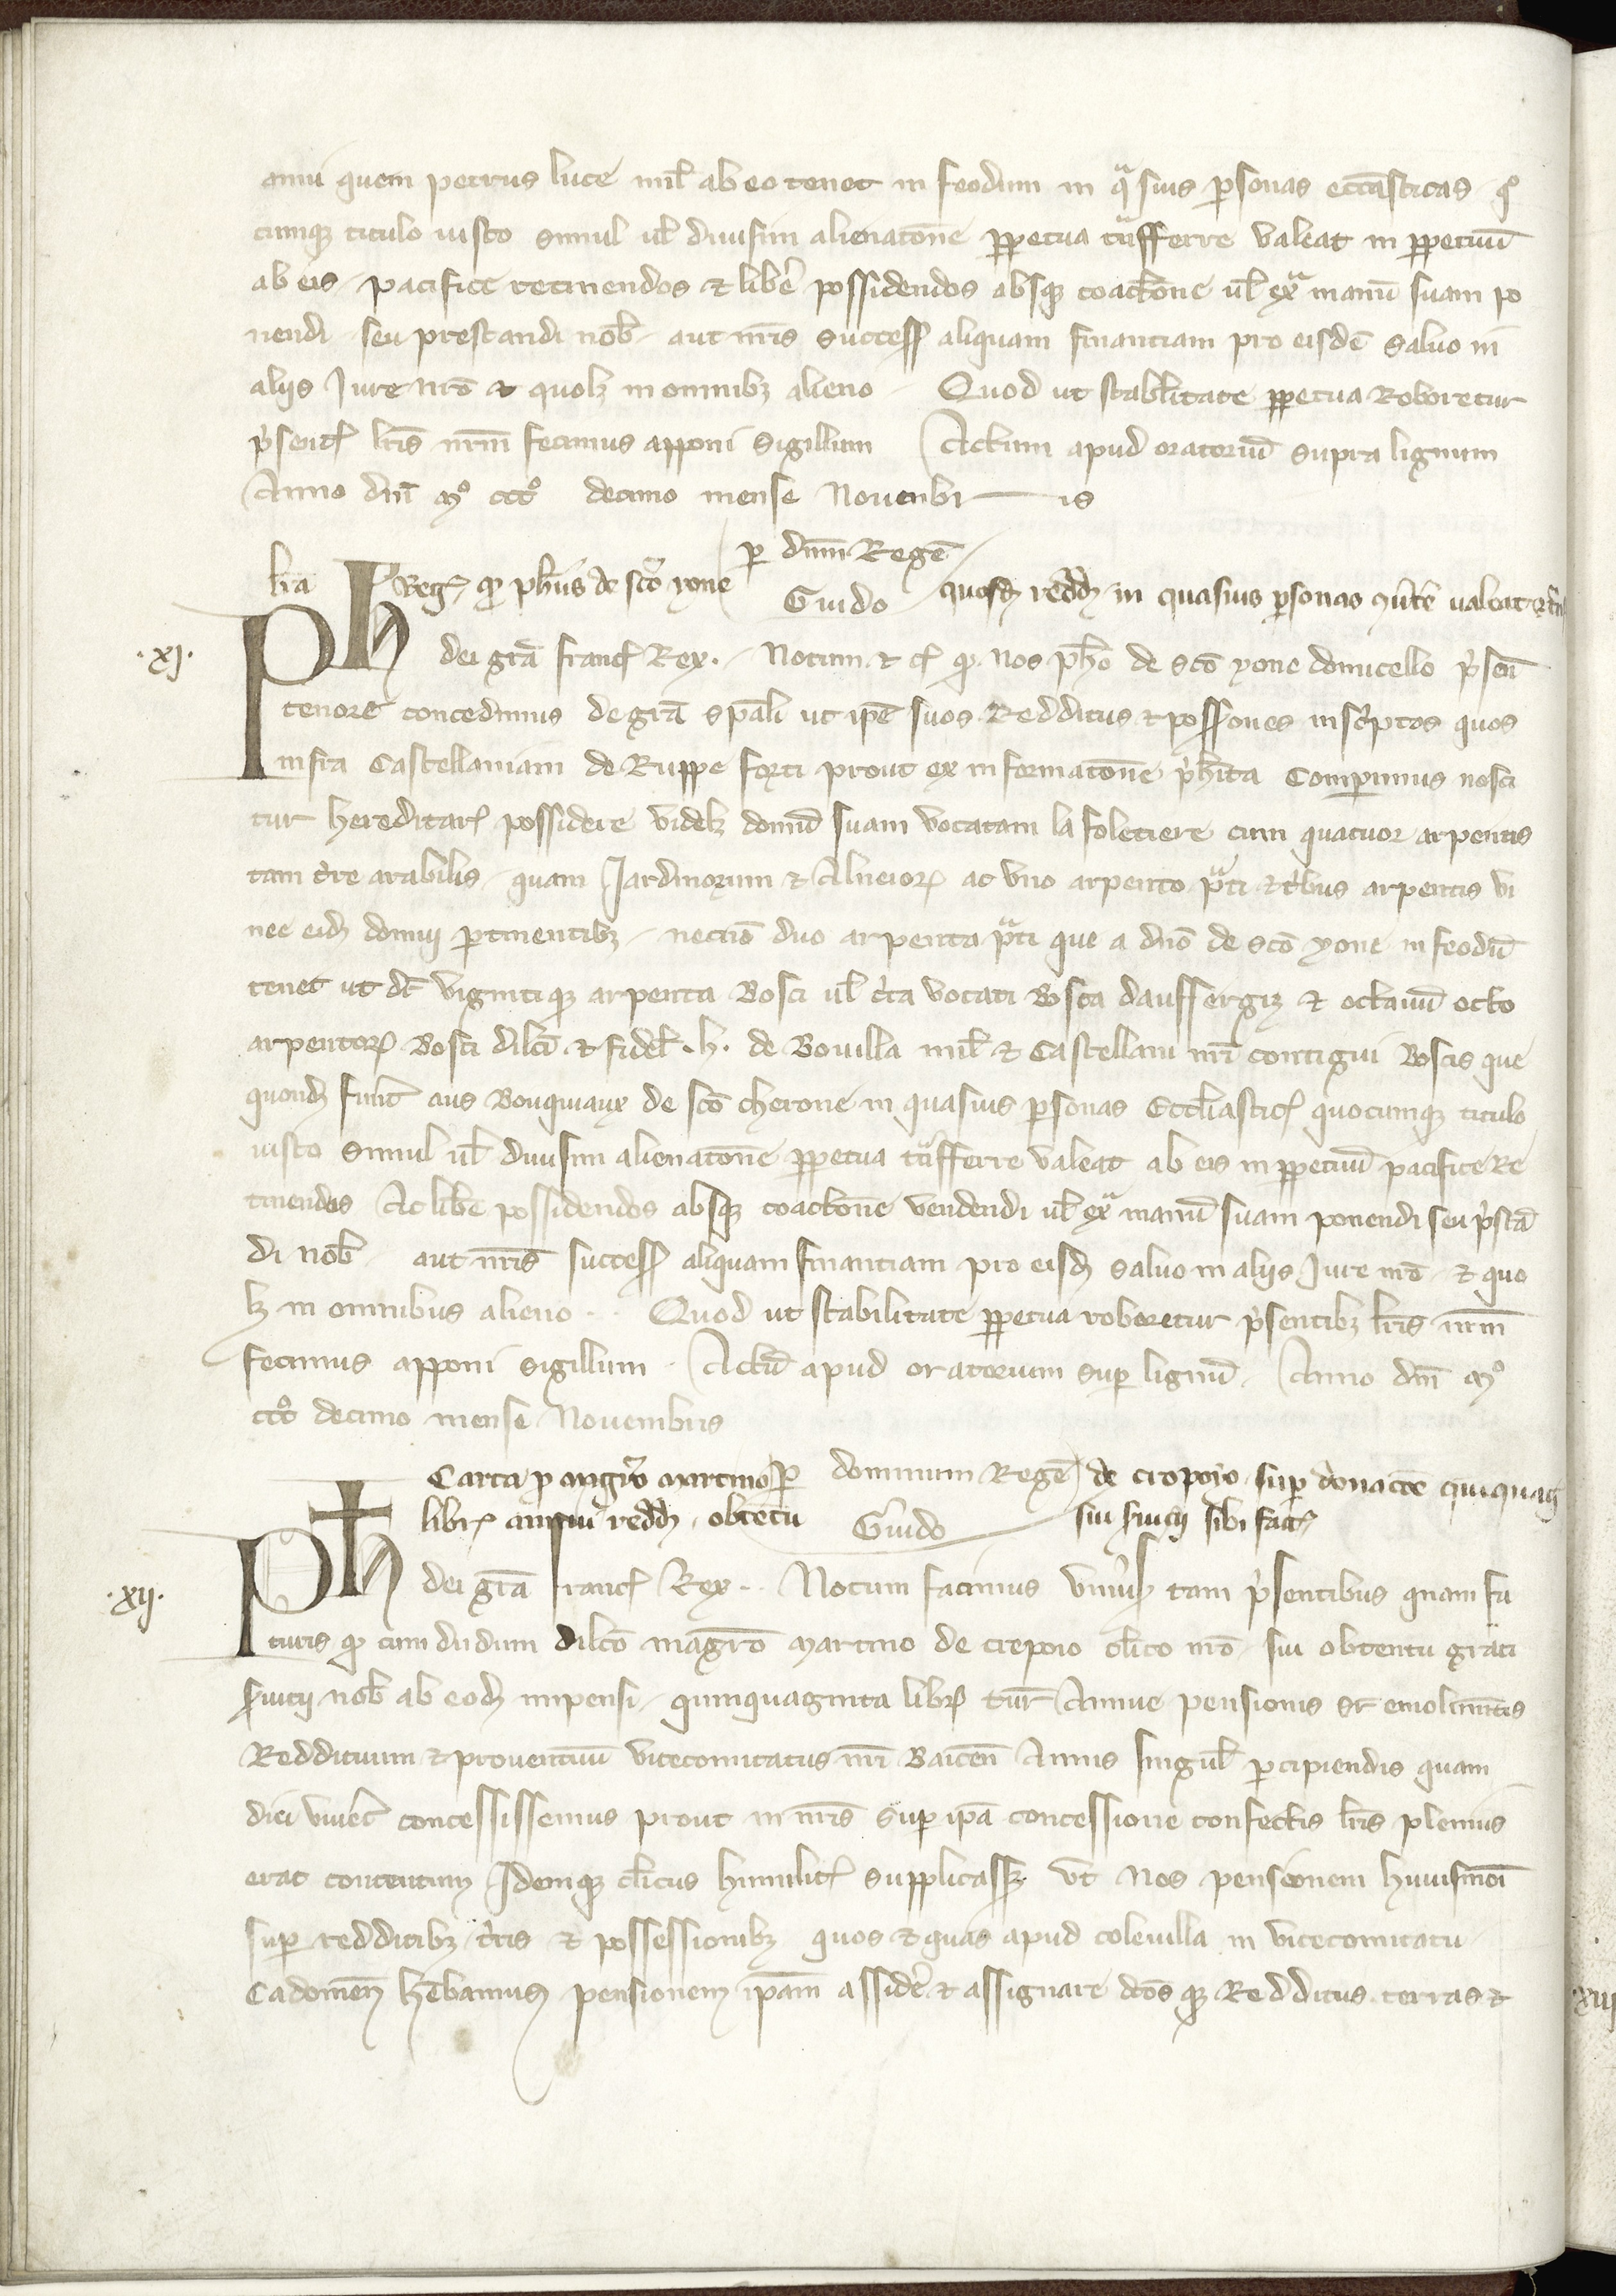 annui quem petrus luce mil̃ ab eo tenet in feodum in q̃suis ꝑsonas eccãsticas qͦ
cumqꝫ titulo iusto simul ul̃ diuisim alienatõne ꝑpetua t̃nsferre valeat in ꝑpetuũ
ab eis pacifice retinendos ⁊ libẽ possidendos absqꝫ coactõne ul̃ ext̃ manũ suam po
nendi seu prestandi nob̃ aut nr̃is success̃ aliquam financiam pro eisdẽ saluo in
aliis Iure nr̃o ⁊ quolꝫ in omnibꝫ alieno Quod ut stabl̃itate ꝑpetua Roboretur
p̃sent̃ lr̃is nr̃m fecimus apponi sigillum Actum apud oratoriũ supra lignum
Anno dñi mͦ cccͦ decimo mense Nouenbr is
ꝑ dnm̃ Regẽ
lr̃a Reg̃ qꝫ ph̃us de scõ yone Guido quosdꝫ reddꝫ in quasuis ꝑsonas ualeat
.xj. Ph dei gr̃a franc̃ Rex. Notum ⁊ c̃ qꝫ nos ph̃o de scõ yone domicello p̃sen̄
tenore concedimus de gr̃a sp̃ali ut ip̃e suos Redditus ⁊ poss̃ones infrãptos quos
infra Castellaniam de Ruppe forti prout ex informatõne p̃hita Comperimus nosci
tur hereditar̃ possidere videlꝫ domũ suam vocatam la foletiere cum quatuor arpentis
tam t̃re arabilis quam Jardinorum ⁊ Alneioꝝ ac vno arpento p̃ti ⁊ t̃bus arpentis vi
nee eidꝫ domui ꝑtinentibꝫ necnõ duo arpenta p̃ti que a dño de scõ yone in feodũ
tenet ut dc̃ vigintiqꝫ arpenta Bosci ul̃ c̃ta vocati Bosca dauffergis ⁊ octauũ octo
arpentoꝝ Bosci dilc̃i ⁊ fidel̃ .h. de Bouilla mil̃ ⁊ Castellani nr̃i contigui Boscis que
quondꝫ fuer̃t aus Bouquiaux de scõ cherone in quasuis ꝑsonas Eccl̃iastic̃ quocumqꝫ titulo
iusto simul ul̃ diuisim alienatõne ꝑpetua t̃nsferre valeat ab eis in ꝑpetuũ pacifice Re
tinendos Ac libẽ possidendos absqꝫ coactõne vendendi ul̃ ext̃ manũ suam ponendi seu p̃stã
di nob̃ aut nr̃is success̃ aliquam financiam pro eisdꝫ saluo in aliis Iure nr̃o ⁊ quo
lꝫ in omnibus alieno Quod ut stabilitate ꝑpetua roboretur p̃sentibꝫ lr̃is nr̃m
fecimus apponi sigillum Actũ apud oratorium suꝑ lignũ Anno dñi mͦ
cccͦ decimo mense Nouenbris
Carta ꝓ magr̃o martino ꝑ dominum Regẽ de crepoyo suꝑ donacõe quiquag̃
libr̃ annui reddꝫ obtẽtu Guido sui suicii sibi fact̃
.xij. Ph dei gr̃a franc̃ Rex Notum facimus vniũsꝫ tam p̃sentibus quam fu
turis qꝫ cum dudum dilc̃o magr̃o martino de crepoio cl̃ico nr̃o sui obtentu grati
ẜuicii nob̃ ab eodꝫ impensi quinquaginta libr̃ tur̃ Annue pensionis sr̃ emolimẽtis
Reddituum ⁊ prouentuũ vicecomitatus nr̃i Baiceñ Annis singul̃ ꝑcipiendis quam
diu viuẽt concessissemus prout in nr̃is suꝑ ip̃a concessione confectis lr̃is plenius
erat contentum Idemqꝫ cl̃icus humilit̃ supplicassꝫ vt Nos pensionem huiusmõi
suꝑ redditibꝫ t̃ris ⁊ possessionibꝫ quos ⁊ quas apud coleuilla in vicecomitatu
Cadomen̄ hẽbamus pensionem ip̃am assidẽ ⁊ assignare dc̃os qꝫ Redditus terras ⁊
xiij